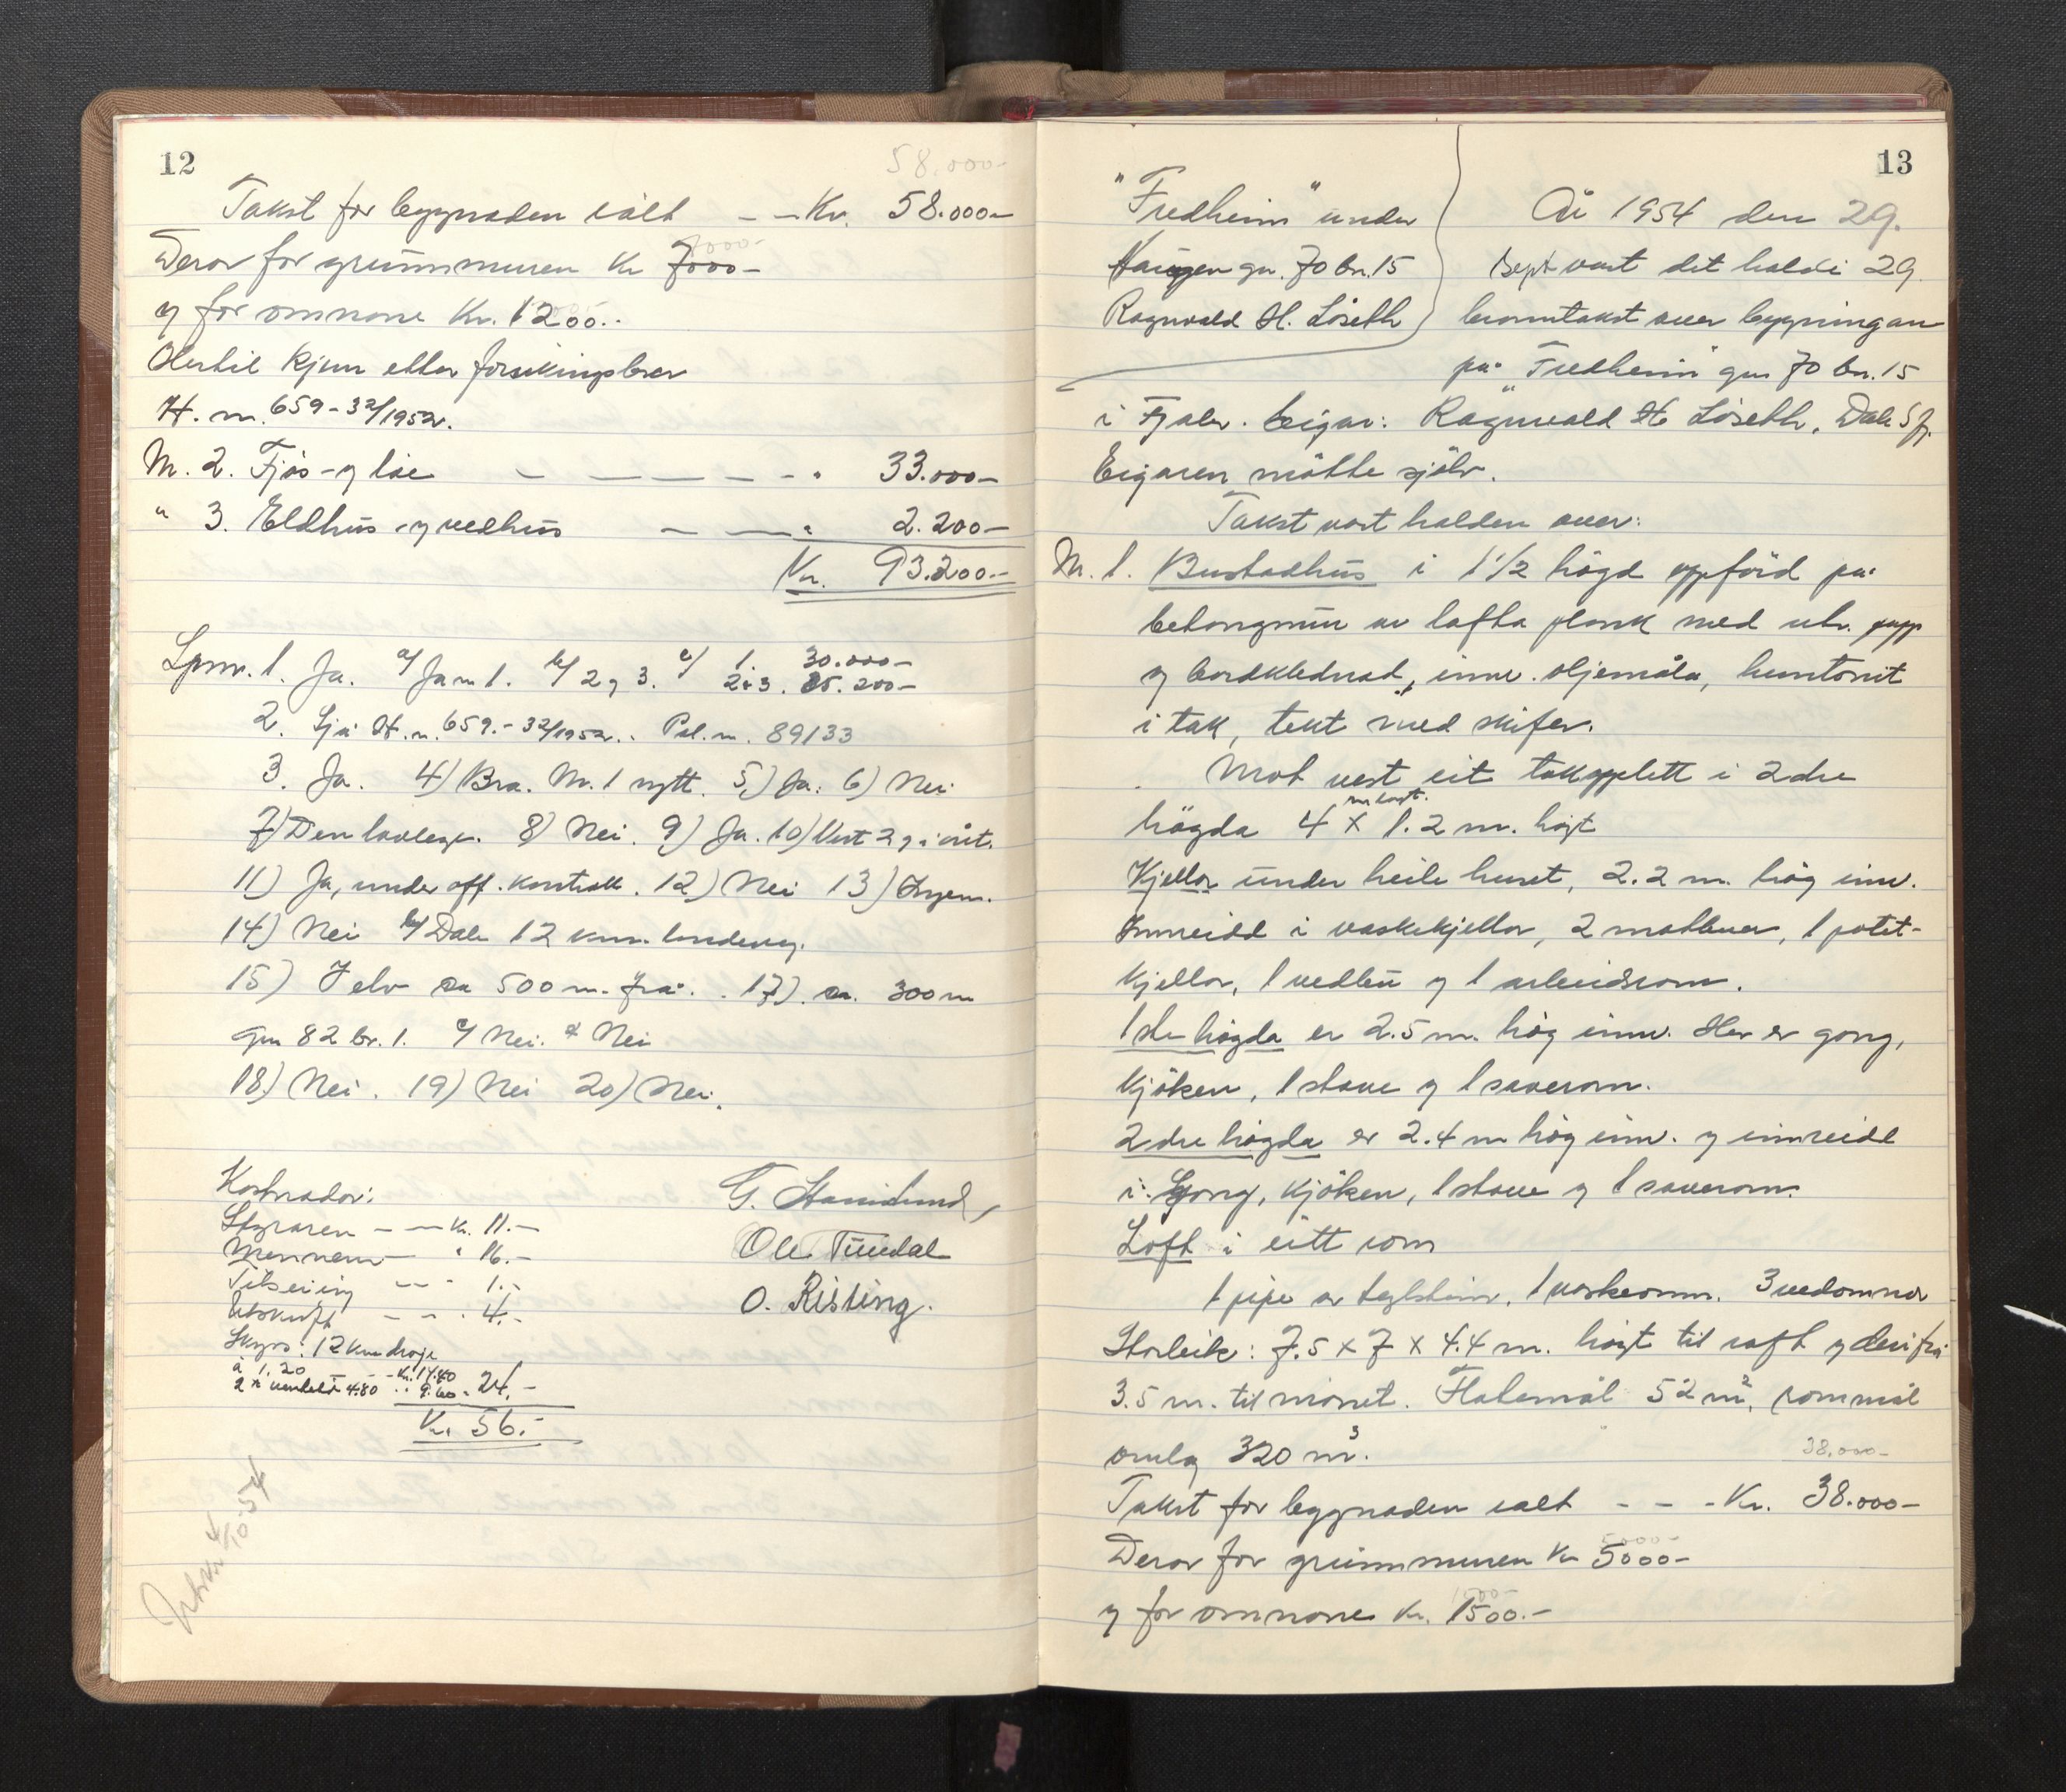 12
58.000-
Takst for bygnaden ialt - - Kr. 58.000-
Derav for grunnmuren Kr 7000-
og for omnane Kr. 1200.-
Hertil kjem etter forsikringsbrev
H. nr. 659-32/1952.
Nr. 2. Fjøs- og løe - - - - - " 33.000-
" 3. Eldhus og vedhus - - " 2.200-
Kr. 93.200.-
Spm. 1. Ja. a/ Ja nr 1. b/ 2 og 3. c/ 1. 30.000-
2+3. 35.200-
2. Sjå H. nr. 659.-32/1952.. Pol. nr. 89133
3. Ja. 4) Bra. Nr. 1 nytt. 5) Ja. 6) Nei
7) Den lovlege. 8) Nei. 9) Ja. 10) Vert 2 g. i året.
11) Ja, under off. kontroll. 12) Nei 13) Ingen.
14) Nei b/ Dale 12 km. landeveg.
15) I elv ca 500 m. frå. . 17) ca. 300 m
gnr 82 br. 1. c/ Nei. d Nei
18) Nei. 19) Nei 20) Nei.
Kostnader:
Styraren - - Kr. 11.-
Mennene - " 16.-
Tilseiing - - - 1.-
Utskrift - - . 4.-
Skyss: 12 km drosje
à 1.20 - - Kr. 14.40
2 x venteld 4.80 .. 9.60. 24.-
Kr. 56.-
G. Hamelund
Ole Tuedal
O. Risting.
Utskr 4/10-54
13
"Fredheim" under
Haugen gn. 70 bn. 15
Ragnvald H. Løseth
År 1954 den 29.
sept vart det halde 29
branntakst over bygningane
på "Fredheim" gnr 70 bn. 15
i Fjaler. Eigar: Ragnvald H Løseth, Dale Sfj.
Eigaren møtte sjølv.
Takst vart halden over:
Nr. 1. Bustadhus i 1 1/2 høgd oppførd på
betongmur av lafta plank med utv. papp
og bordklednad, innv. oljemåla, huntonit
i tak, tekt med skifer.
Mot vest eit takopplett i 2dre
høgda 4 x 1.2 m. høgt
Kjellar under heile huset, 2.2 m. høg innv.
Innreidd i vaskekjellar, 2 matbuer, 1 potet-
kjellar, 1 vedbu og 1 arbeidsrom.
1ste høgda er 2.5 m. høg innv. Her er gong,
kjøken, 1 stove og 1 soverom.
2dre høgda er 2.4 m høg innv. og innreidd
i gong, kjøken, 1 stove og 1 soverom.
Loft i eitt rom
1 pipe av teglstein, 1 vaskeomn. 3 vedomnar
Storleik: 7.5 x 7 x 4.4 m. høgt til raft og derifrå
3.5 m. til mønet. Flatemål 52 m², rommål
omlag 320 m³.
38.000-
Takst for bygnaden ialt - - - Kr. 38.000-
Derav for grunnmuren Kr 5000-
og for omnane Kr. 1500.-